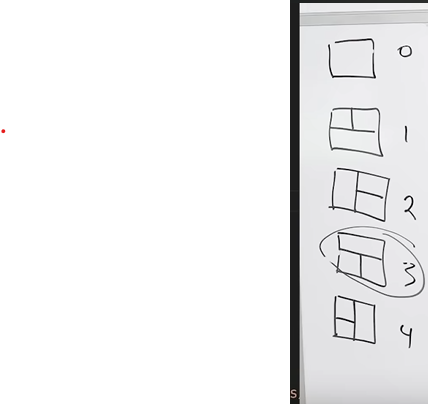 0
1
2
3
4
s.